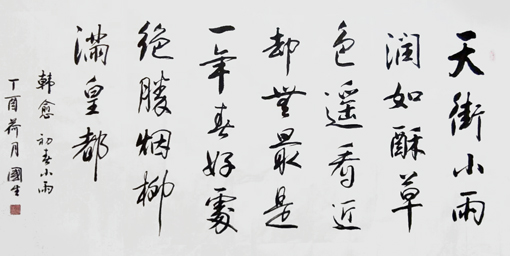 天街小雨
润如酥草
色遥看近
却無最是
一年春好處
绝勝烟柳
满皇都
韩愈 初春小雨
丁酉荷月 國生